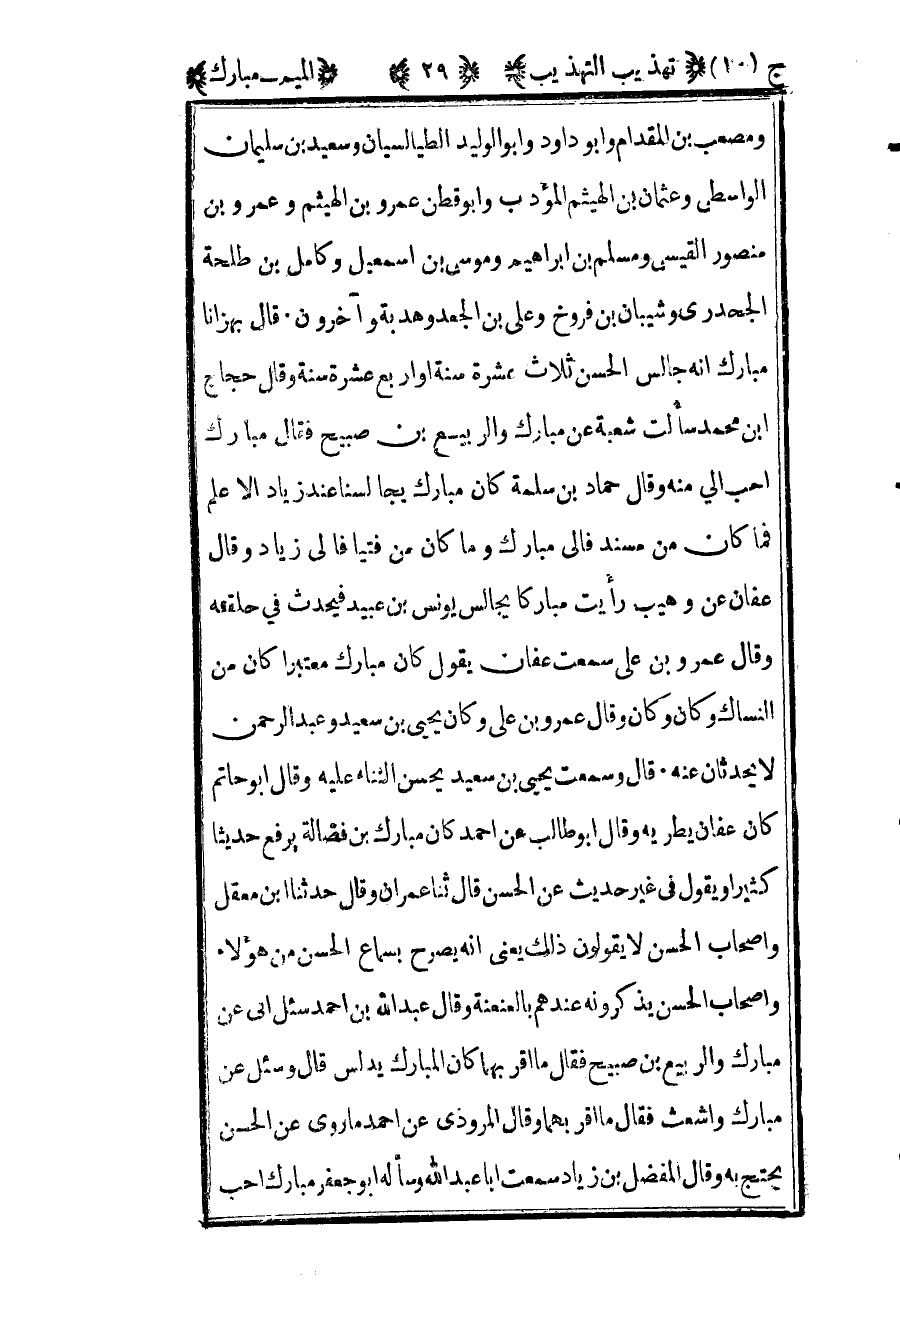 ج (١٠) تهذيب التهذيب ٢٩ الميم ـ مبارك
ومصعب بن المقدام وابو داود وابو الوليد الطيالسيان وسعيد بن سليمان
الواسطى وعثمان بن الهيثم المؤدب وابو قطن عمرو بن الهيثم وعمرو بن
منصور القيسى ومسلم بن ابراهيم وموسى بن اسمعيل وكامل بن طلحة
الجحدرى وشيبان بن فروخ وعلى بن الجعد وهدبة وآخرون · قال بهز انا
مبارك انه جالس الحسن ثلاث عشرة سنة او اربع عشرة سنة وقال حجاج
ابن محمد سألت شعبة عن مبارك والربيع بن صبيح فقال مبارك
احب الي منه وقال حماد بن سلمة كان مبارك يجالسنا عند زياد الاعلم
فما كان من مسند فالى مبارك وما كان من فتيا فالى زياد وقال
عفان عن وهيب رأيت مباركا يجالس يونس بن عبيد فيحدث في حلقته
وقال عمرو بن على سمعت عفان يقول كان مبارك معتبرا كان من
النساك وكان وكان وقال عمرو بن على وكان يحيى بن سعيد وعبد الرحمن
لا يحدثان عنه · قال وسمعت يحيى بن سعيد يحسن الثناء عليه وقال ابو حاتم
كان عفان يطريه وقال ابو طالب عن احمد كان مبارك بن فضالة يرفع حديثا
كثيرا ويقول فى غير حديث عن الحسن قال ثنا عمران وقال حدثنا ابن معقل
واصحاب الحسن لا يقولون ذلك يعنى انه يصرح بسماع الحسن من هؤلاء
واصحاب الحسن يذكرونه عندهم بالعنعنة وقال عبد الله بن احمد سئل ابى عن
مبارك والربيع بن صبيح فقال ما اقربهما كان المبارك يدلس قال وسئل عن
مبارك واشعث فقال ما اقربهما وقال المروذى عن احمد ما روى عن الحسن
يحتج به وقال المفضل بن زياد سمعت ابا عبد الله وسأله ابو جعفر مبارك احب